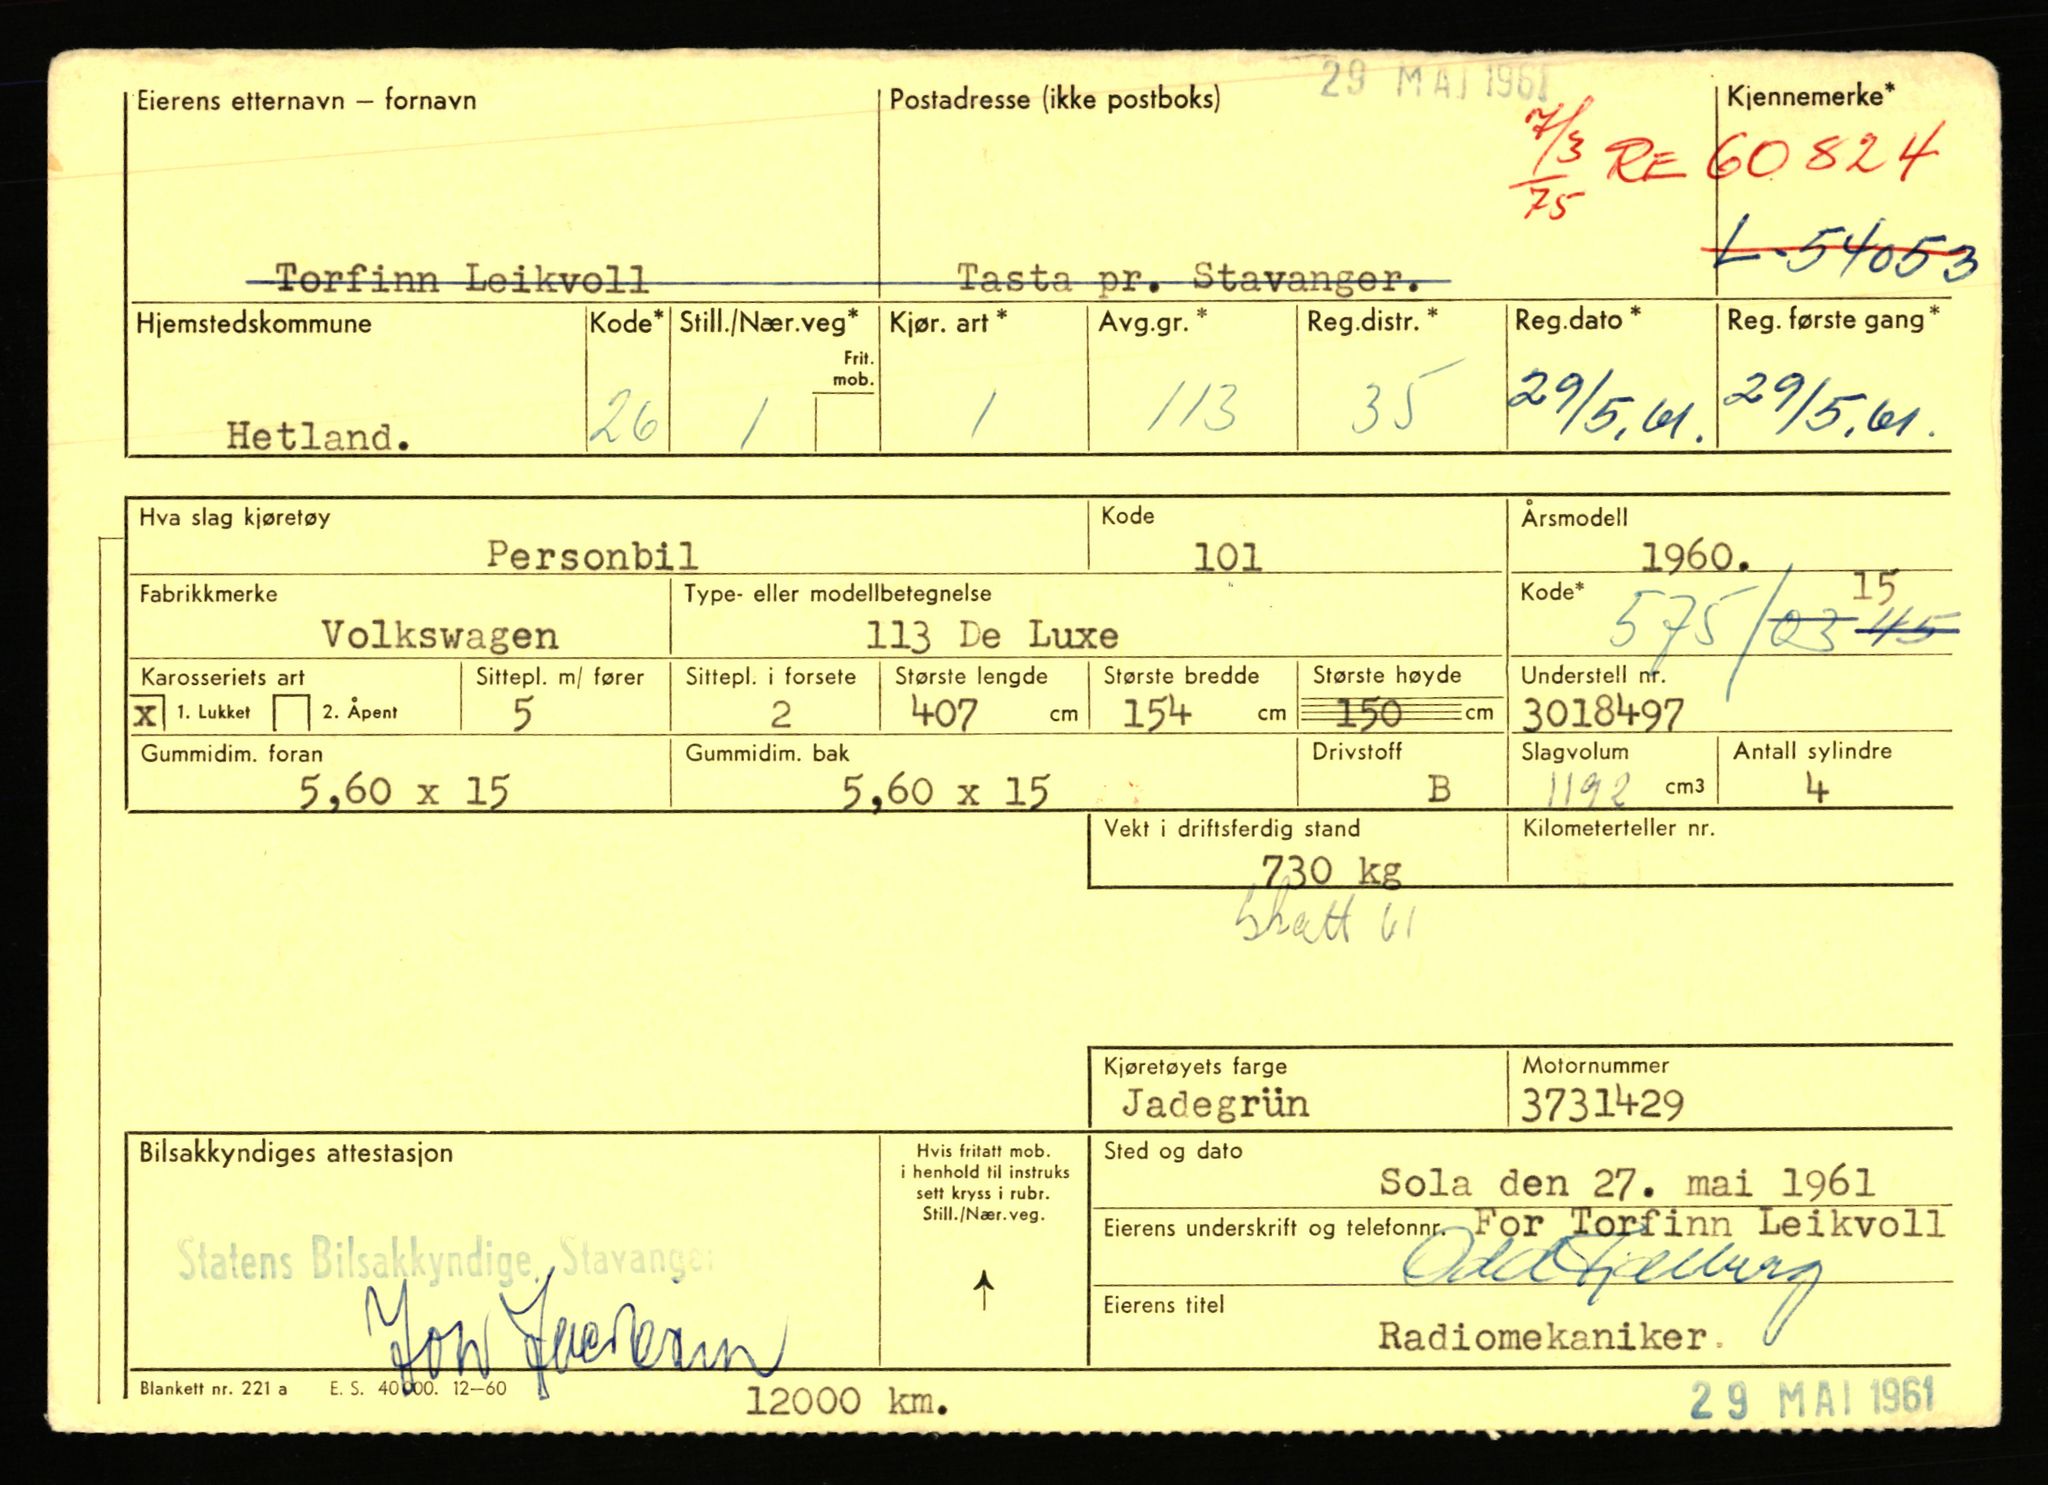 29 MAI 1961
Eierens etternavn – fornavn Postadresse (ikke postboks) Kjennemerke*
7/3 75 RE 60824
L-54053
Torfinn Leikvoll Tasta pr. Stavanger.
Hjemstedskommune Kode* Still./Nær.veg* Kjør. art* Avg.gr.* Reg.distr.* Reg.dato* Reg. første gang*
Frit.
mob.
Hetland. 26 1 1 113 35 29/5.61. 29/5.61.
Hva slag kjøretøy Kode Årsmodell
Personbil 101 1960.
Fabrikkmerke Type- eller modellbetegnelse Kode* 15
Volkswagen 113 De Luxe 575/03 45
Karosseriets art Sittepl. m/ fører Sittepl. i forsete Største lengde Største bredde Største høyde Understell nr.
x 1. Lukket 2. Åpent 5 2 407 cm 154 cm 150 cm 3018497
Gummidim. foran Gummidim. bak Drivstoff Slagvolum Antall sylindre
5,60 x 15 5,60 x 15 B 1192 cm3 4
Vekt i driftsferdig stand Kilometerteller nr.
730 kg
Skatt 61
Kjøretøyets farge Motornummer
Jadegrün 3731429
Bilsakkyndiges attestasjon Hvis fritatt mob. Sted og dato
i henhold til instruks
sett kryss i rubr.
Still./Nær.veg.
Sola den 27. mai 1961
Eierens underskrift og telefonnr. For Torfinn Leikvoll
Statens Bilsakkyndige, Stavanger
Odd
Eierens titel
Radiomekaniker.
Blankett nr. 221 a E. S. 40000. 12–60
12000 km.
29 MAI 1961